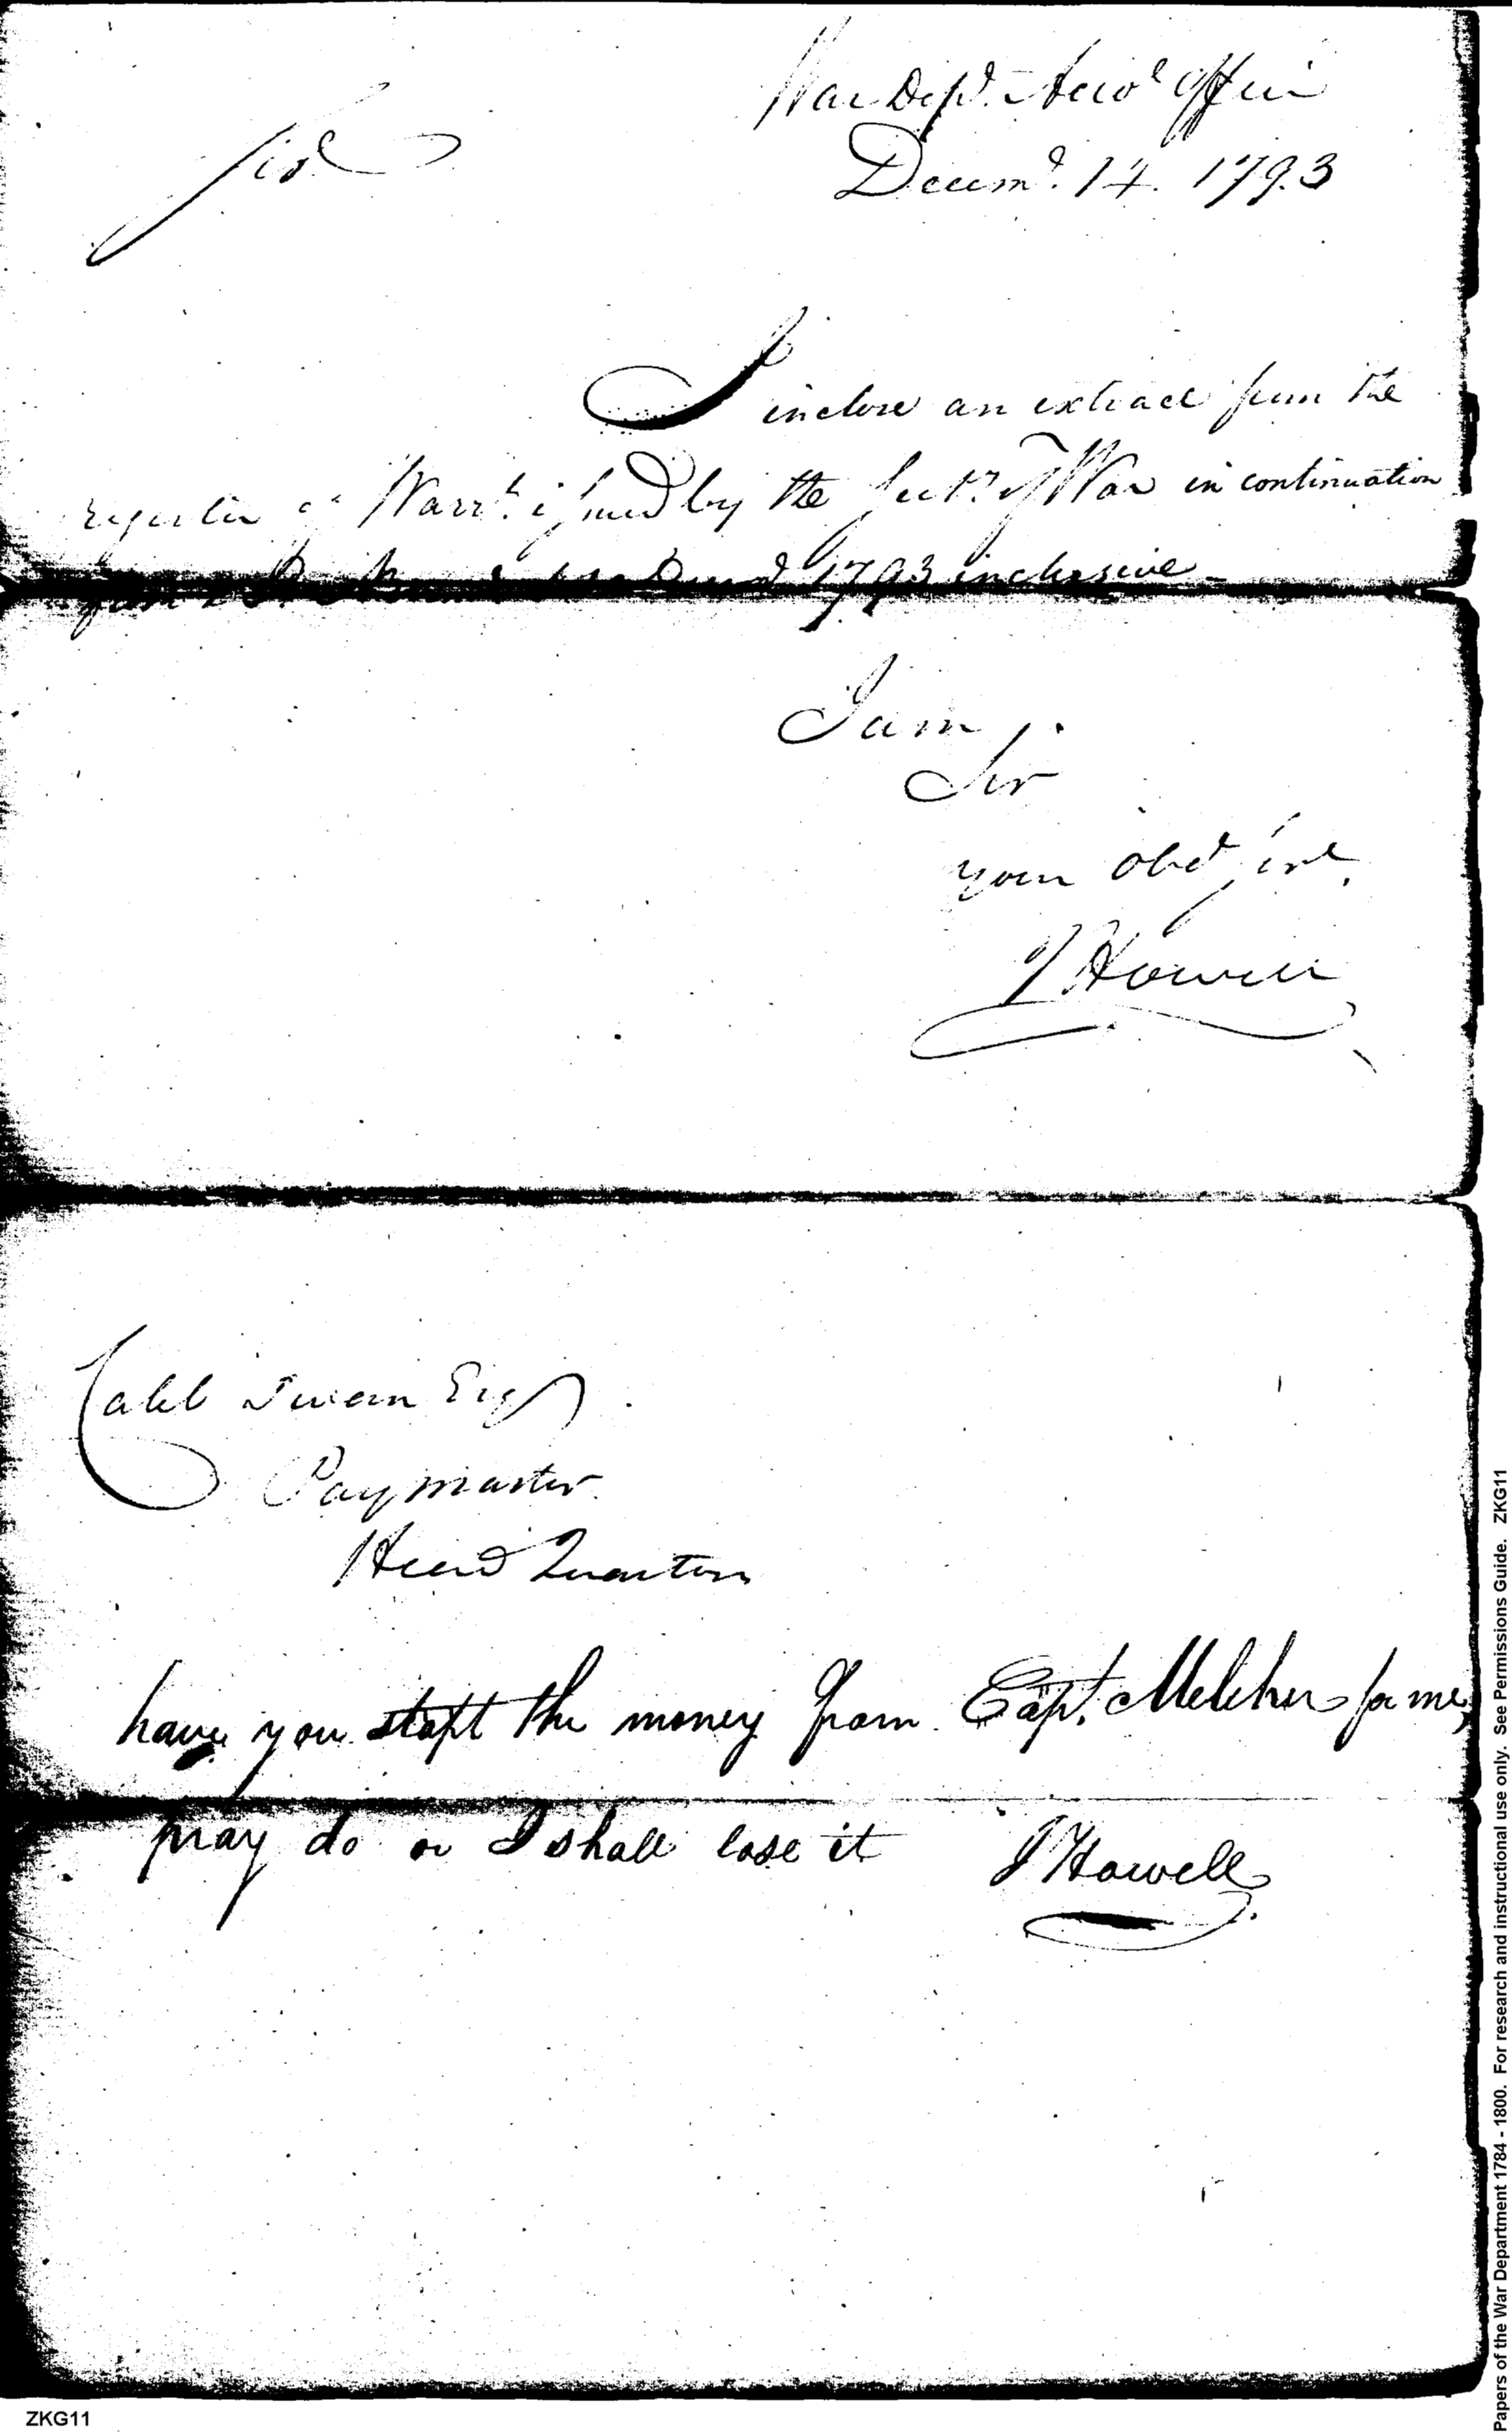 War Dept. Acco.t Office
Decem.r 14. 1793
Sir
I inclose an extract from the
register of Warr.ts issued by the Sect.y of War in continuation
from 1793 inclusive
I am,
Sir
your Obed.t Srvt.
J Howell
Caleb Swan Esq
Paymaster
Head Quarters
have you stopt the money from Capt. Melcher for me,
pray do or I shall lose it J Howell
Papers of the War Department 1784 - 1800. For research and instructional use only. See Permissions Guide. ZKG11
ZKG11